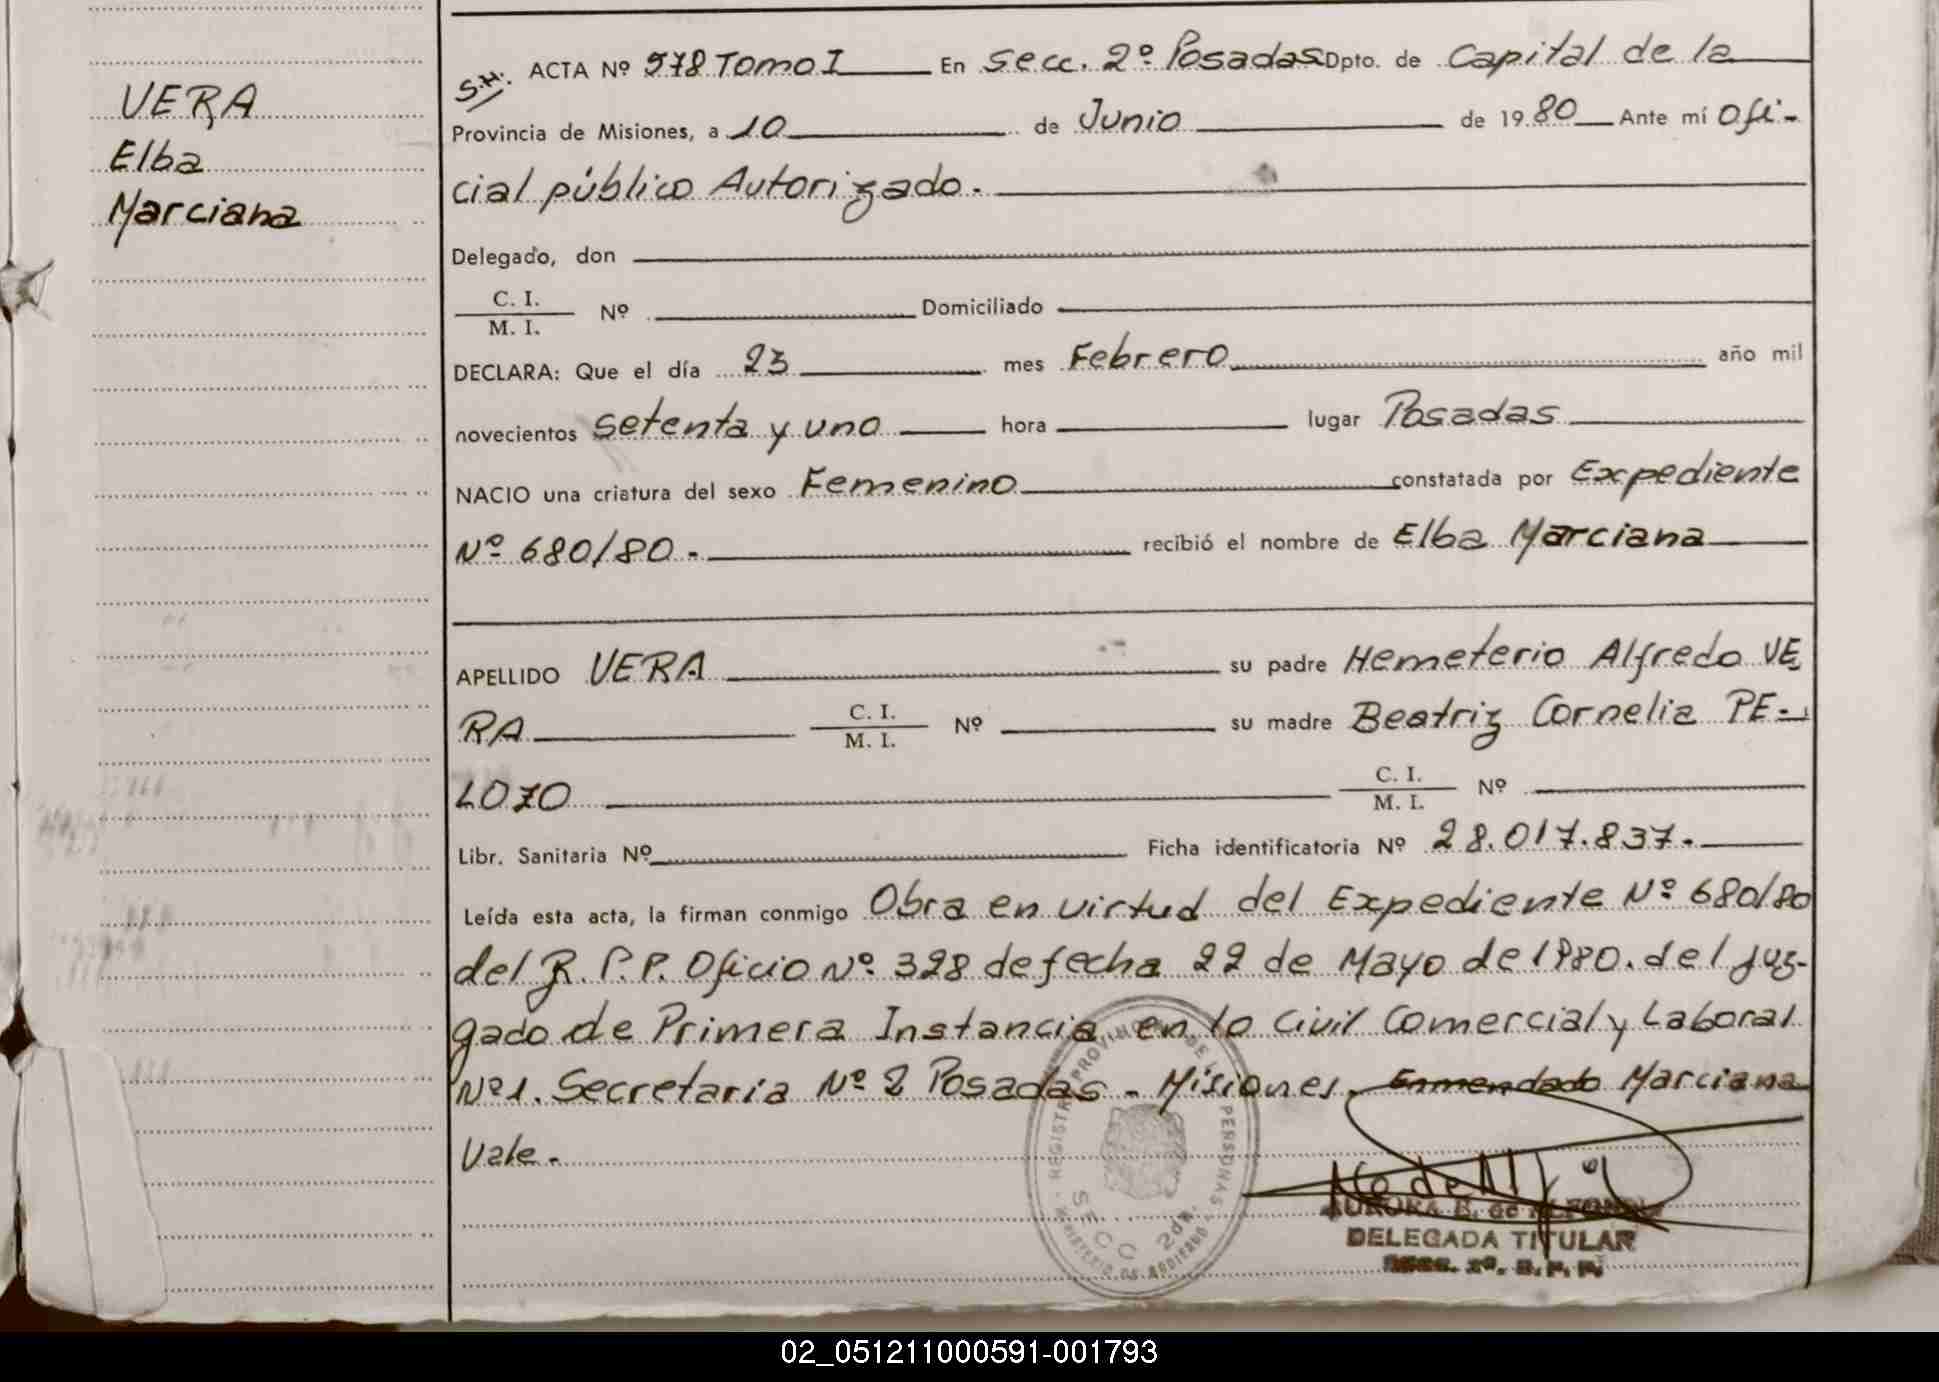 VERA
Elba
Marciana
S.H. ACTA Nº 978 Tomo I En Secc. 2º Posadas Dpto. de Capital de la
Provincia de Misiones, a 10 de Junio de 1980 Ante mí Ofi-
cial público Autorizado.
Delegado, don
C. I.
M. I.
Nº Domiciliado
DECLARA: Que el día 23 mes Febrero año mil
novecientos setenta y uno hora lugar Posadas
NACIO una criatura del sexo Femenino constatada por Expediente
Nº 680/80.- recibió el nombre de Elba Marciana
APELLIDO VERA su padre Hemeterio Alfredo VE
RA C. I. M. I. Nº su madre Beatriz Cornelia PE-
LOZO C. I. M. I. Nº
Libr. Sanitaria Nº Ficha identificatoria Nº 28.017.837.-
Leída esta acta, la firman conmigo Obra en virtud del Expediente Nº 680/80
del R. P.P. Oficio Nº 328 de fecha 22 de Mayo de 1980. del juz-
gado de Primera Instancia en lo Civil Comercial y Laboral
Nº1. Secretaria Nº 2 Posadas - Misiones. Enmendado Marciana
Vale.-
REGISTRO PROVINCIAL DE L PERSONAS
SECC 2da.
AURORA B. de
DELEGADA TITULAR
SECC. 2ª. R. P. P.
02_051211000591-001793